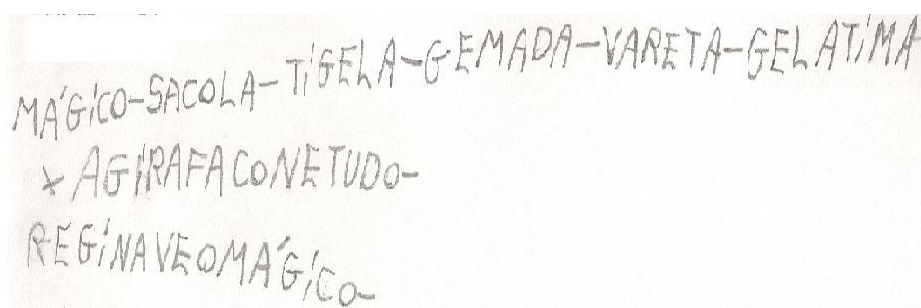 MÁGÍCO-SACOLA-TÍGELA-GEMADA-VARETA-GELATÍMA
x AGÍRAFACONETUDO-
REGÍNAVEOMÁGÍCO-